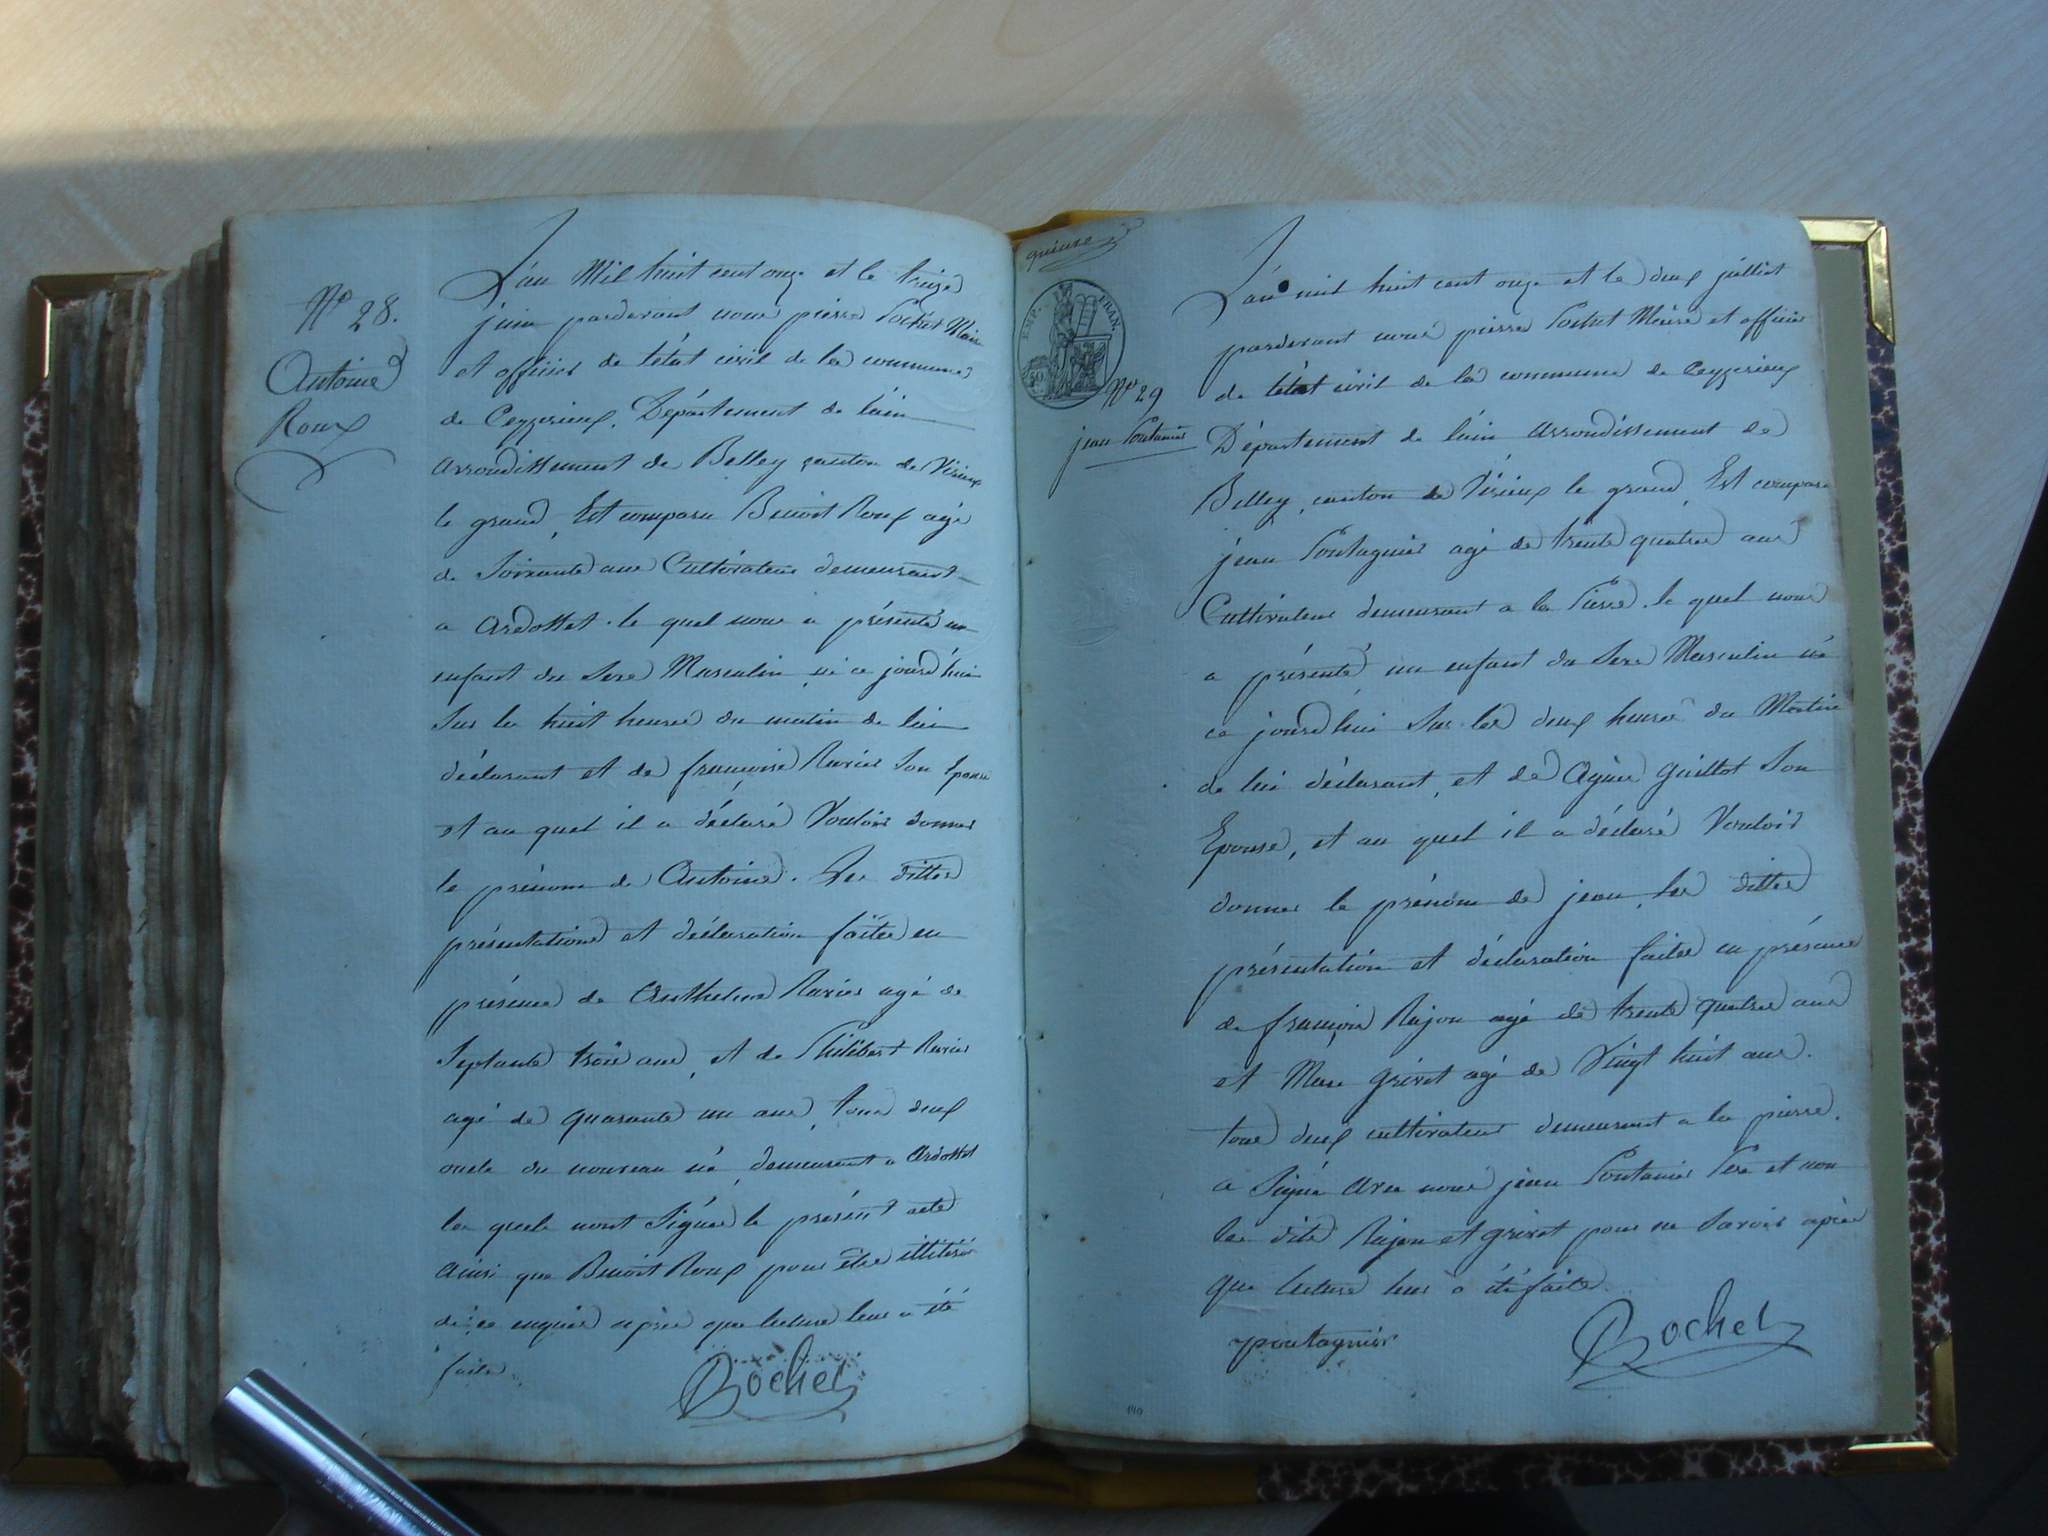 N° 28.
Antoine
Roux
L'an Mil huit cent onze et le treize
juin pardevant nous pierre Pochet Maire
et officier de l'état civil de la commune
de Ceyzerieux, Département de lain
arrondissement de Belley canton de Virieux
le grand, Est comparu Benoit Roux agé
de Soixante ans Cultivateur demeurant
a Ardosset. le quel nous a présenté un
enfant du Sexe Masculin né ce jourd'hui
Sur les huit heures du matin de lui
déclarant et de françoise Ravier Son Epouse
et au quel il a déclaré Vouloir donner
le prénom de Antoine. Les dittes
présentations et déclaration faites en
présence de Anthelme Ravier agé de
Septante trois ans, et de Philibert Ravier
agé de quarante un ans, tous deux
oncle du nouveau né, demeurant a Ardosset
les quels nont Signés le présent acte
ainsi que Benoit Roux pour être illitérés
de ce enquis après que lecture leur a été
faite.
Pochet
quinze
EMP. FRAN.
50
N° 29
jean Pontanier
L'an mil huit cent onze et le deux juilliet
pardevant nous pierre Pochet Maire et officier
de l'état civil de la commune de Ceyzerieux
Département de l'ain arrondissement de
Belley, canton de Virieux le grand, Est comparu
jean Pontagnier agé de trente quatre ans
Cultivateur demeurant a la Pierre. le quel nous
a présenté un enfant du Sexe Masculin né
ce jourd'hui Sur les deux heures du Matin
de lui déclarant, et de Agnes Guillot Son
Epouse, et au quel il a déclaré Vouloir
donner le prénom de jean, les dittes
présentation et déclaration faites en présence
de françois Rajon agé de trente quatre ans
et Marc Grivet agé de Vingt huit ans.
tous deux cultivateurs demeurant a la pierre.
a Signé avec nous jean Pontanier Pere et non
les dits Rajon et Grivet pour ne Savoir après
que lecture leur a été faite.
pontagnier
Pochet
140